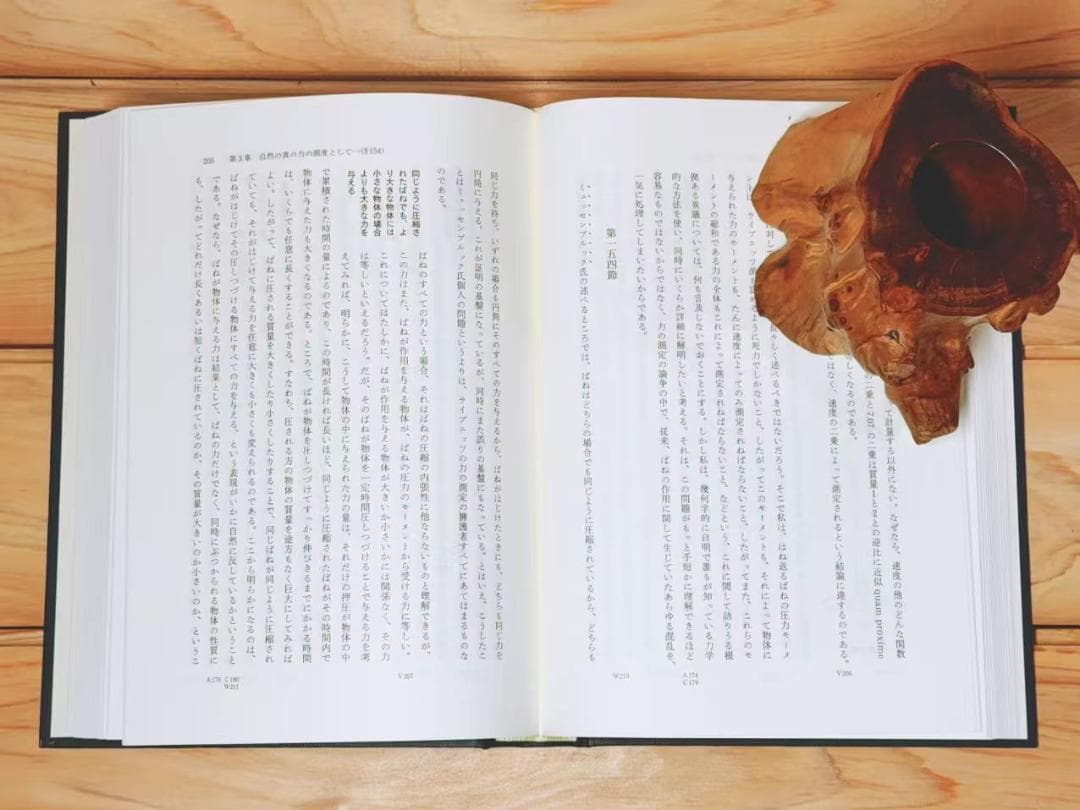 て計量する以外にない。なぜなら、速度の他のどんな関数
二乗と7.07の二乗は質量1と2との逆比に近似 quam proxime
しくなるのである。
はなく、速度の二乗によって測定されるという結論に達するのである。
々しく述べるべきではないだろう。そこで私は、はね返るばねの圧力モーメ
ように死力でしかないこと、したがってこのモーメントも、それによって物体に
与えられた力のモーメントも、たんに速度によってのみ測定されねばならないこと、したがってまた、これらのモ
ーメントの総和である力の全体もこれによって測定されねばならないこと、などという、これに関して語りうる根
拠ある異議については、何も言及しないでおくことにする。しかし私は、幾何学的に自明で誰もが知っている力学
的な方法を使い、同時にいくらか詳細に解明したいと考える。それは、この問題がもっと手短かに理解できるほど
容易なものではないからではなく、力の測定の論争の中で、従来、ばねの作用に関して生じていたあらゆる混乱を、
一気に処理してしまいたいからである。
第一五四節
ミュッセンブルック氏の述べるところでは、ばねはどちらの場合でも同じように圧縮されているから、どちらも
V206
A174
C179
W210
205 第3章 自然の真の力の測度として…(§154)
同じ力を持ち、いずれの場合も円筒にそのすべての力を与えるから、ばねがはじけたときにも、どちらも同じ力を
円筒に与える。これが証明の基盤になっているが、同時にまた誤りの基盤にもなっている。とはいえ、こうしたこ
とはミュッセンブルック氏個人の問題というよりは、ライプニッツの力の測定の擁護者すべてにあてはまるものな
のである。
同じように圧縮さ
れたばねでも、よ
り大きな物体には
小さな物体の場合
よりも大きな力を
与える
ばねのすべての力という場合、それはばねの圧縮の内張性に他ならないものと理解できるが、
この力はまた、ばねが作用を与える物体が、ばねの圧力のモーメントから受ける力に等しい。
これについてはたしかに、ばねが作用を与える物体が大きいか小さいかには関係なく、その力
は等しいといえるだろう。だが、そのばねが物体を一定時間圧しつづけることで与える力を考
えてみれば、明らかに、こうして物体の中に与えられた力の量は、それだけの押圧が物体の中
で累積された時間の量によるのであり、この時間が長ければ長いほど、同じように圧縮されたばねがその時間内で
物体に与えた力も大きくなるのである。ところで、ばねが物体を圧しつづけてすっかり伸びきるまでにかかる時間
は、いくらでも任意に長くすることができる。すなわち、圧される方の物体の質量を途方もなく巨大にしてみれば
よい。したがって、ばねに圧される質量を大きくしたり小さくしたりすることで、同じばねが同じように圧縮され
ていても、それがはじけて与える力を任意に大きくも小さくも変えられるのである。ここから明らかになるのは、
ばねがはじけてその圧しつづける物体にすべての力を与える、という表現がいかに自然に反しているかということ
である。なぜなら、ばねが物体に与える力は結果として、ばねの力だけでなく、同時にぶつかられる物体の性質に
も、したがってどれだけ長くあるいは短くばねに圧されているのか、その質量が大きいのか小さいのか、というこ
V207
C180
W211